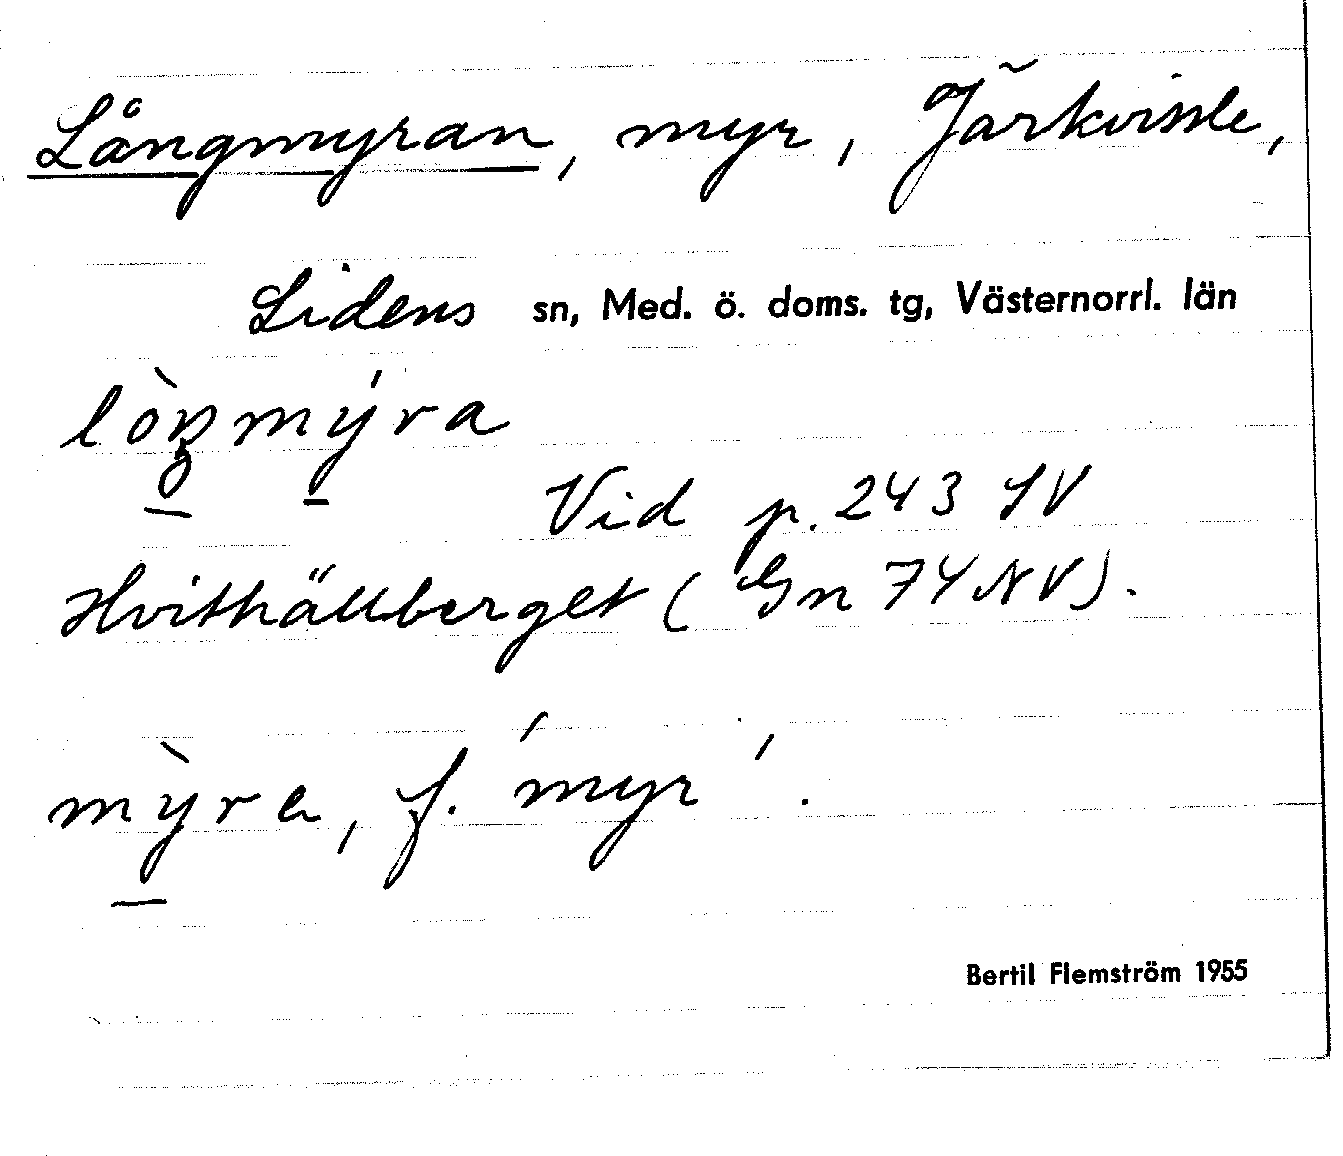 Långmyran, myr, Järkvissle,
Lidens sn, Med. ö. doms. tg, Västernorrl. län
lòŋmýra
Vid p. 243 SV
Hvithällberget (Gn 74 NV).
mỳra, f. 'myr'.
Bertil Flemström 1955